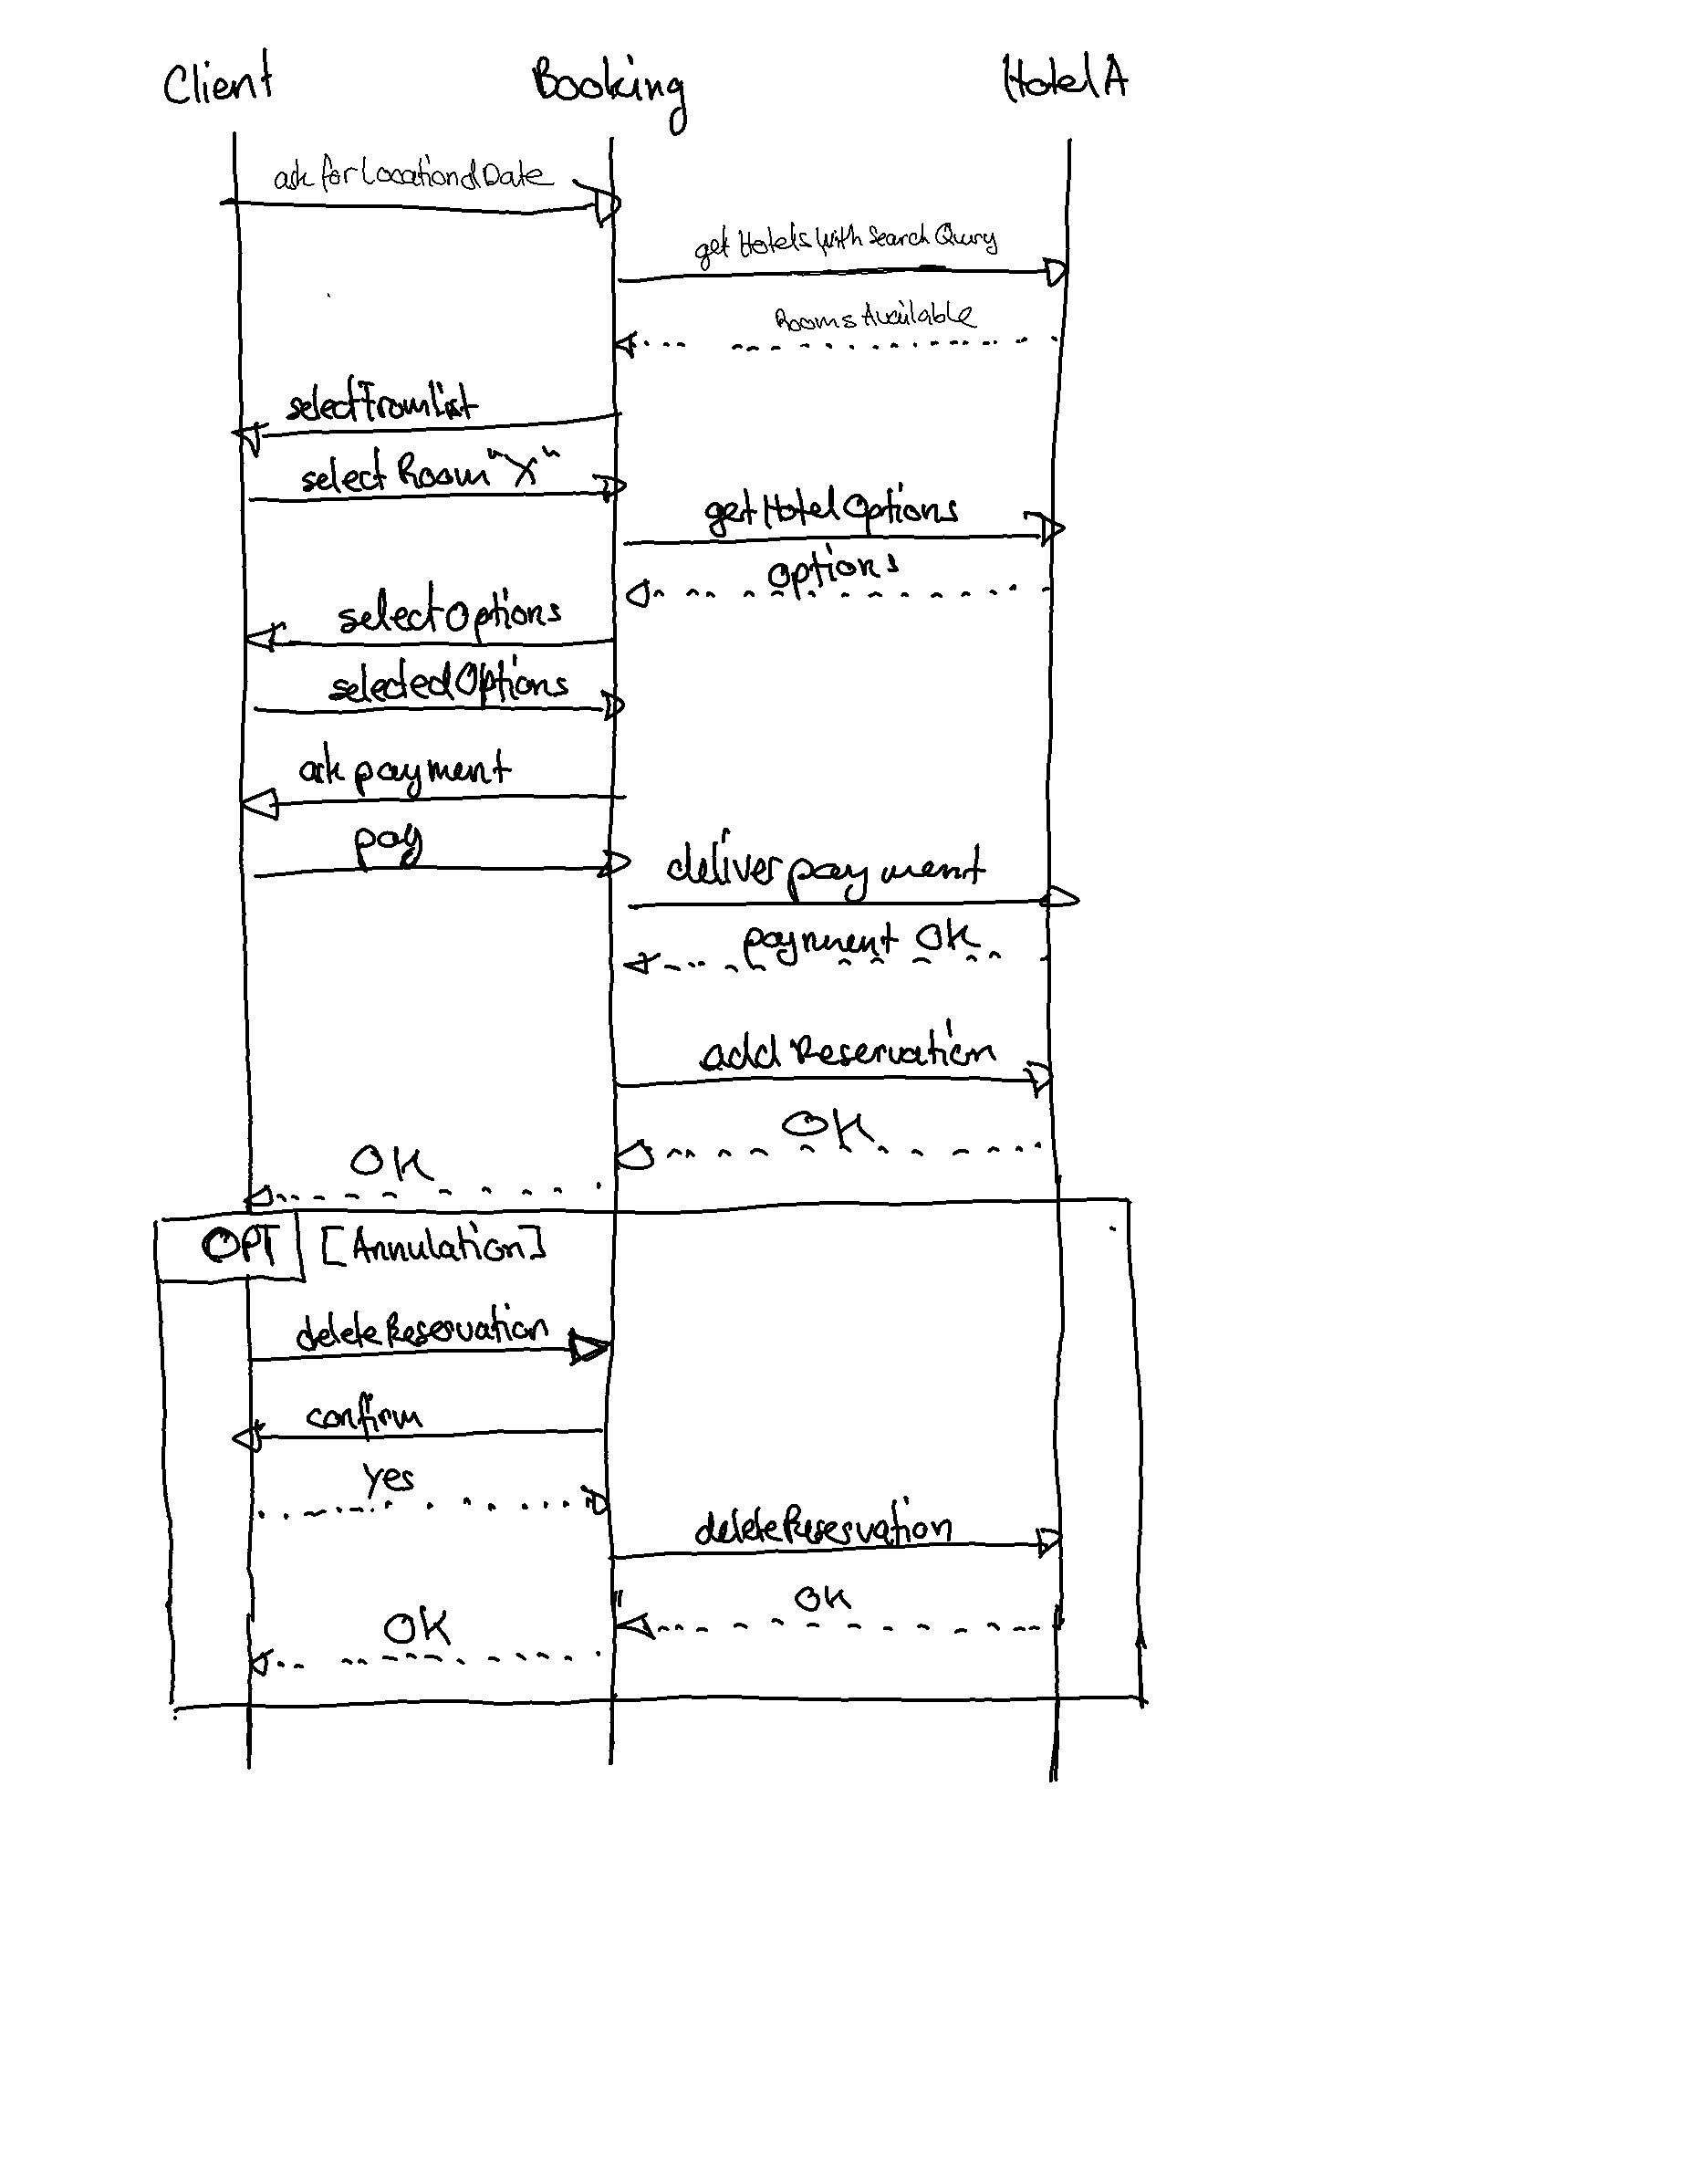 Client Booking HotelA
ask for LocationdDate
get Hotels With Search Qury
Rooms Available
selectFromlist
select Room "X"
getHotelOptions
options
selectOptions
selectedOptions
ask payment
pay
deliver payment
payment OK
add Reservation
OK
OK
OPT [Annulation]
deleteReservation
confirm
Yes
deleteReservation
OK
OK